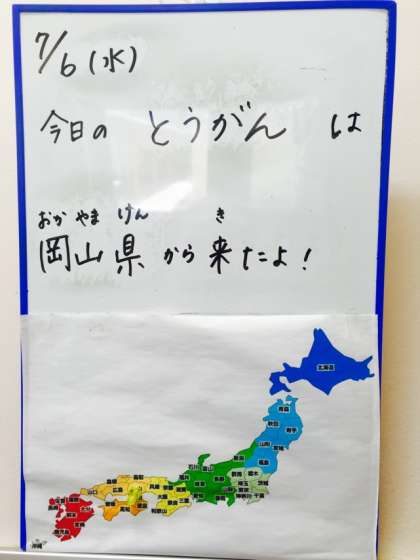 7/6(水)
今日の とうがん は
おか やま けん き
岡山県から来たよ!
北海道
青森
秋田 岩手
山形 宮城
福島
新潟
石川 富山
群馬 栃木
長野 埼玉 茨城
東京
神奈川 千葉
岐阜
愛知 静岡
島根 鳥取
山口 広島
兵庫 京都 滋賀
大阪 三重
和歌山
高知
佐賀 福岡
長崎 大分
熊本
宮崎
鹿児島
沖縄